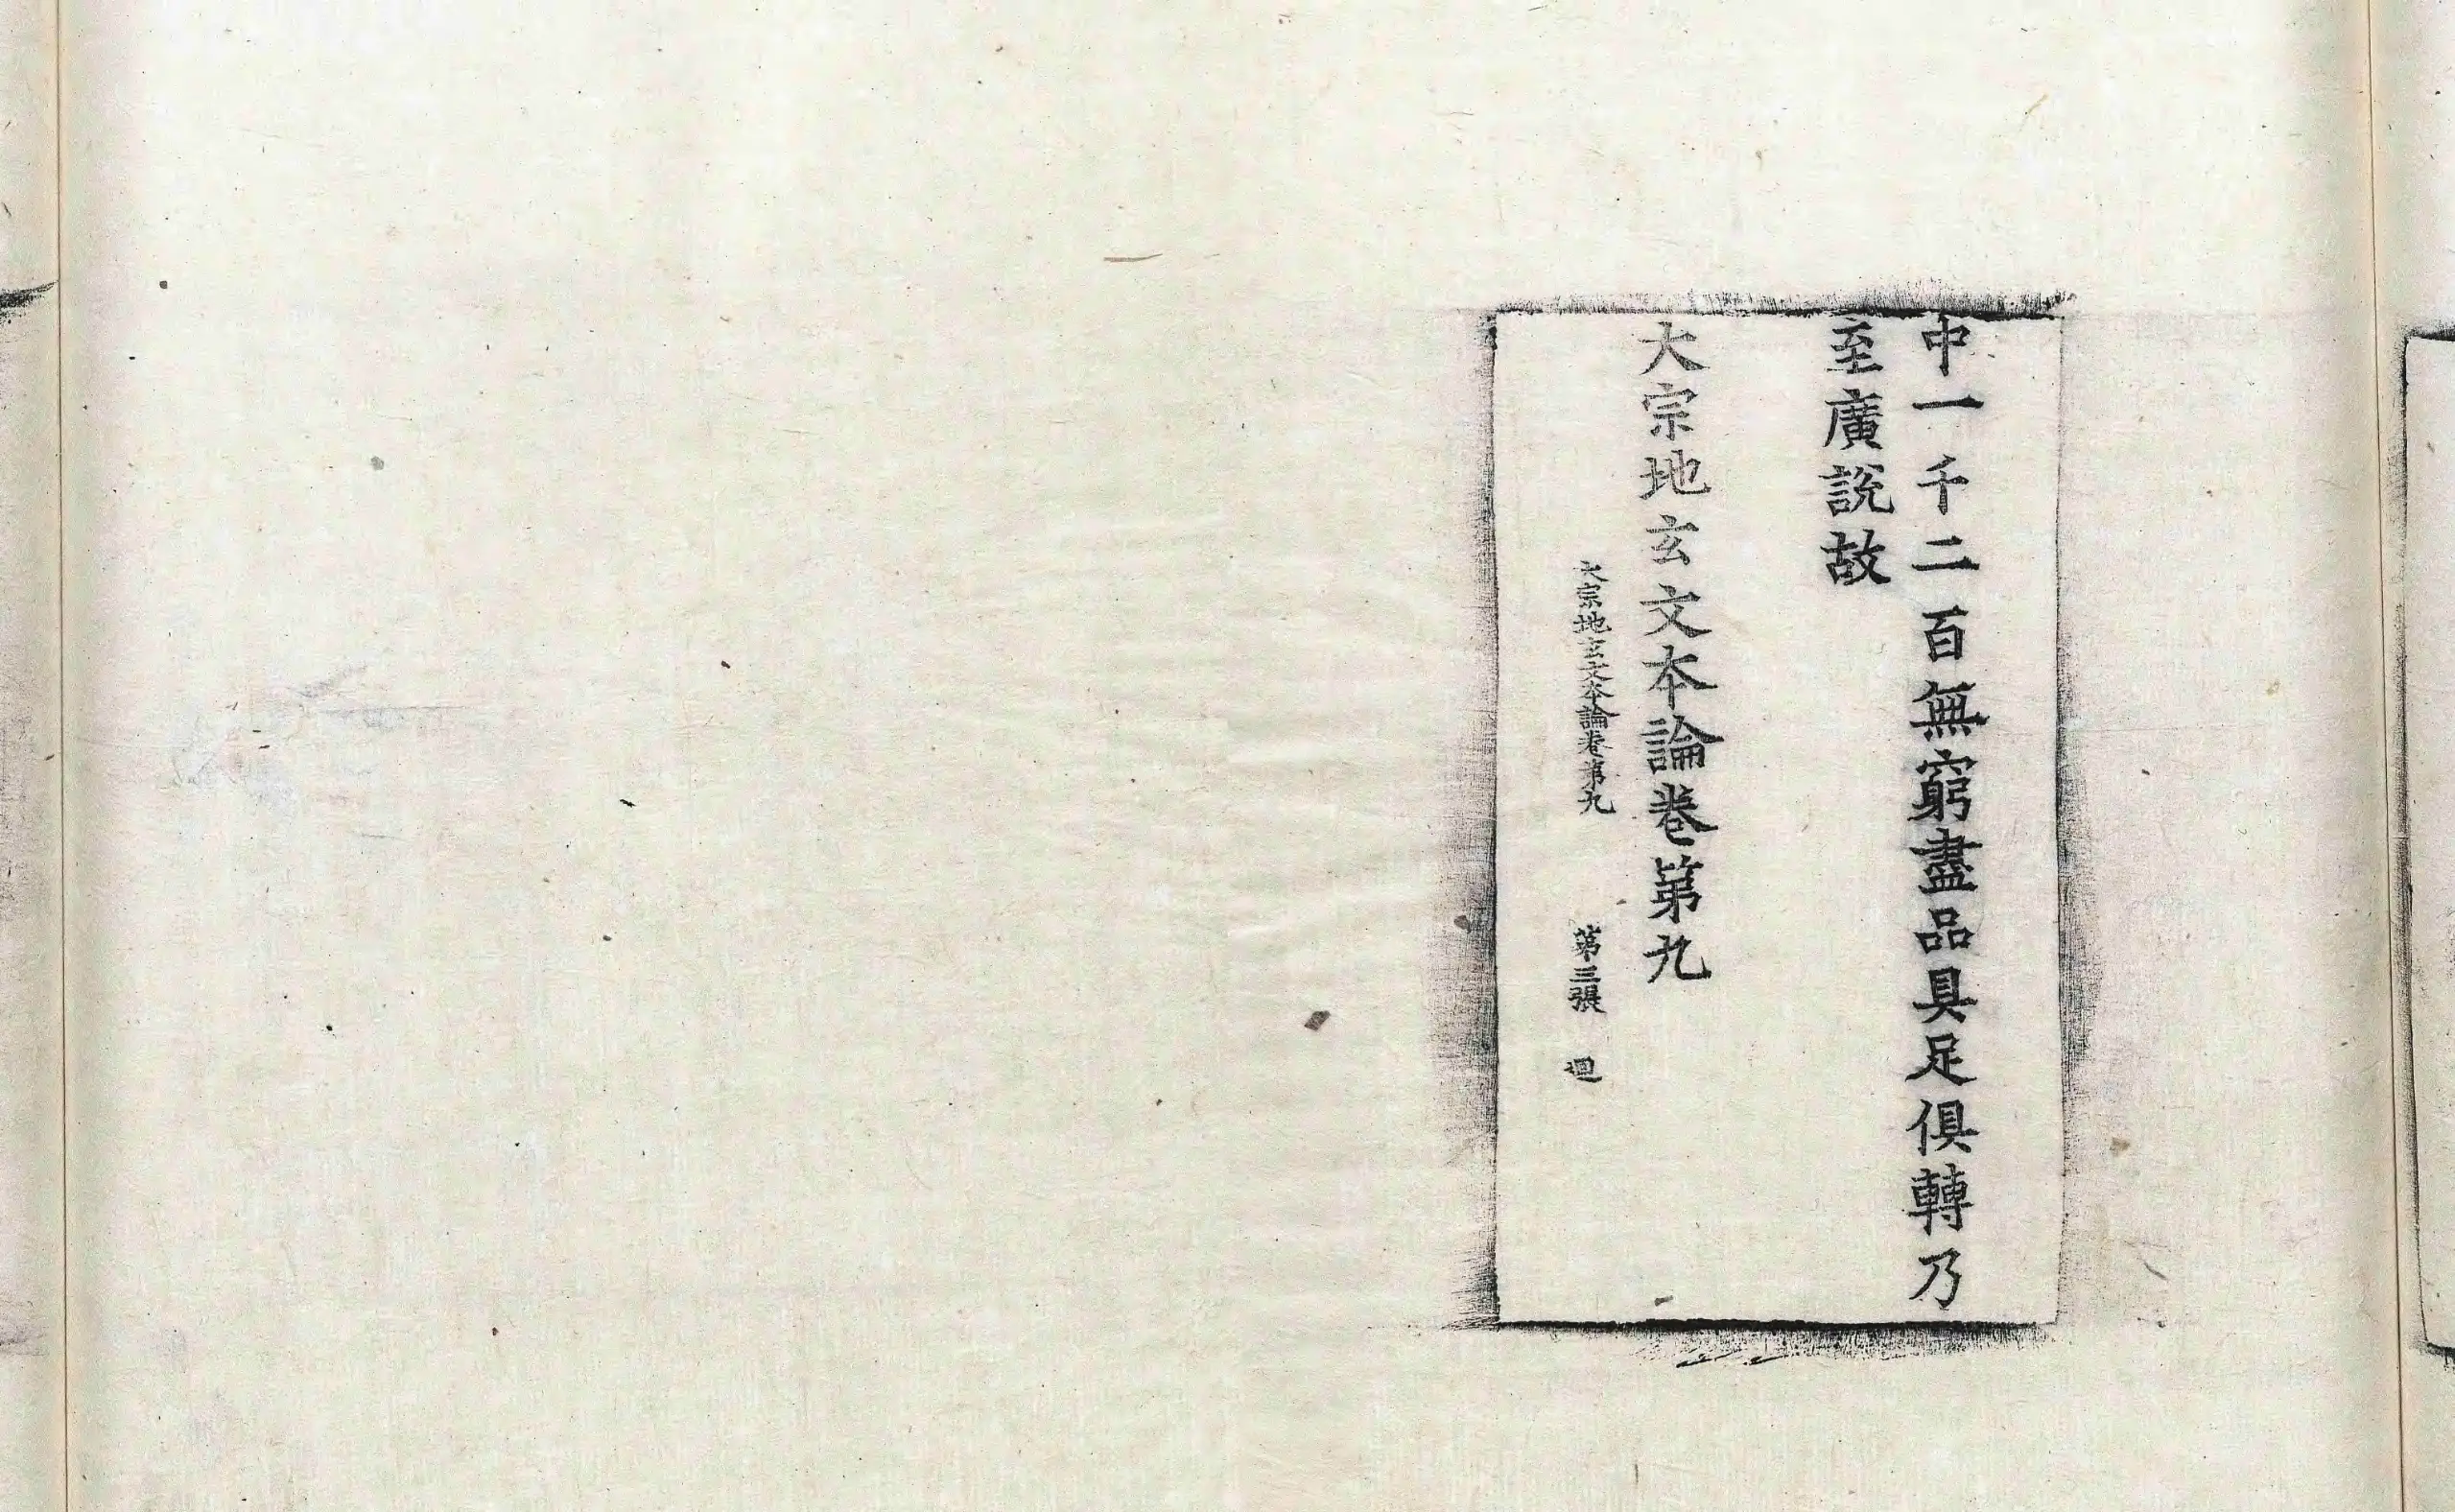 中一千二百無窮盡品具足俱轉乃
至廣說故
大宗地玄文本論卷第九
大宗地玄文本論卷第九　第三張　迴